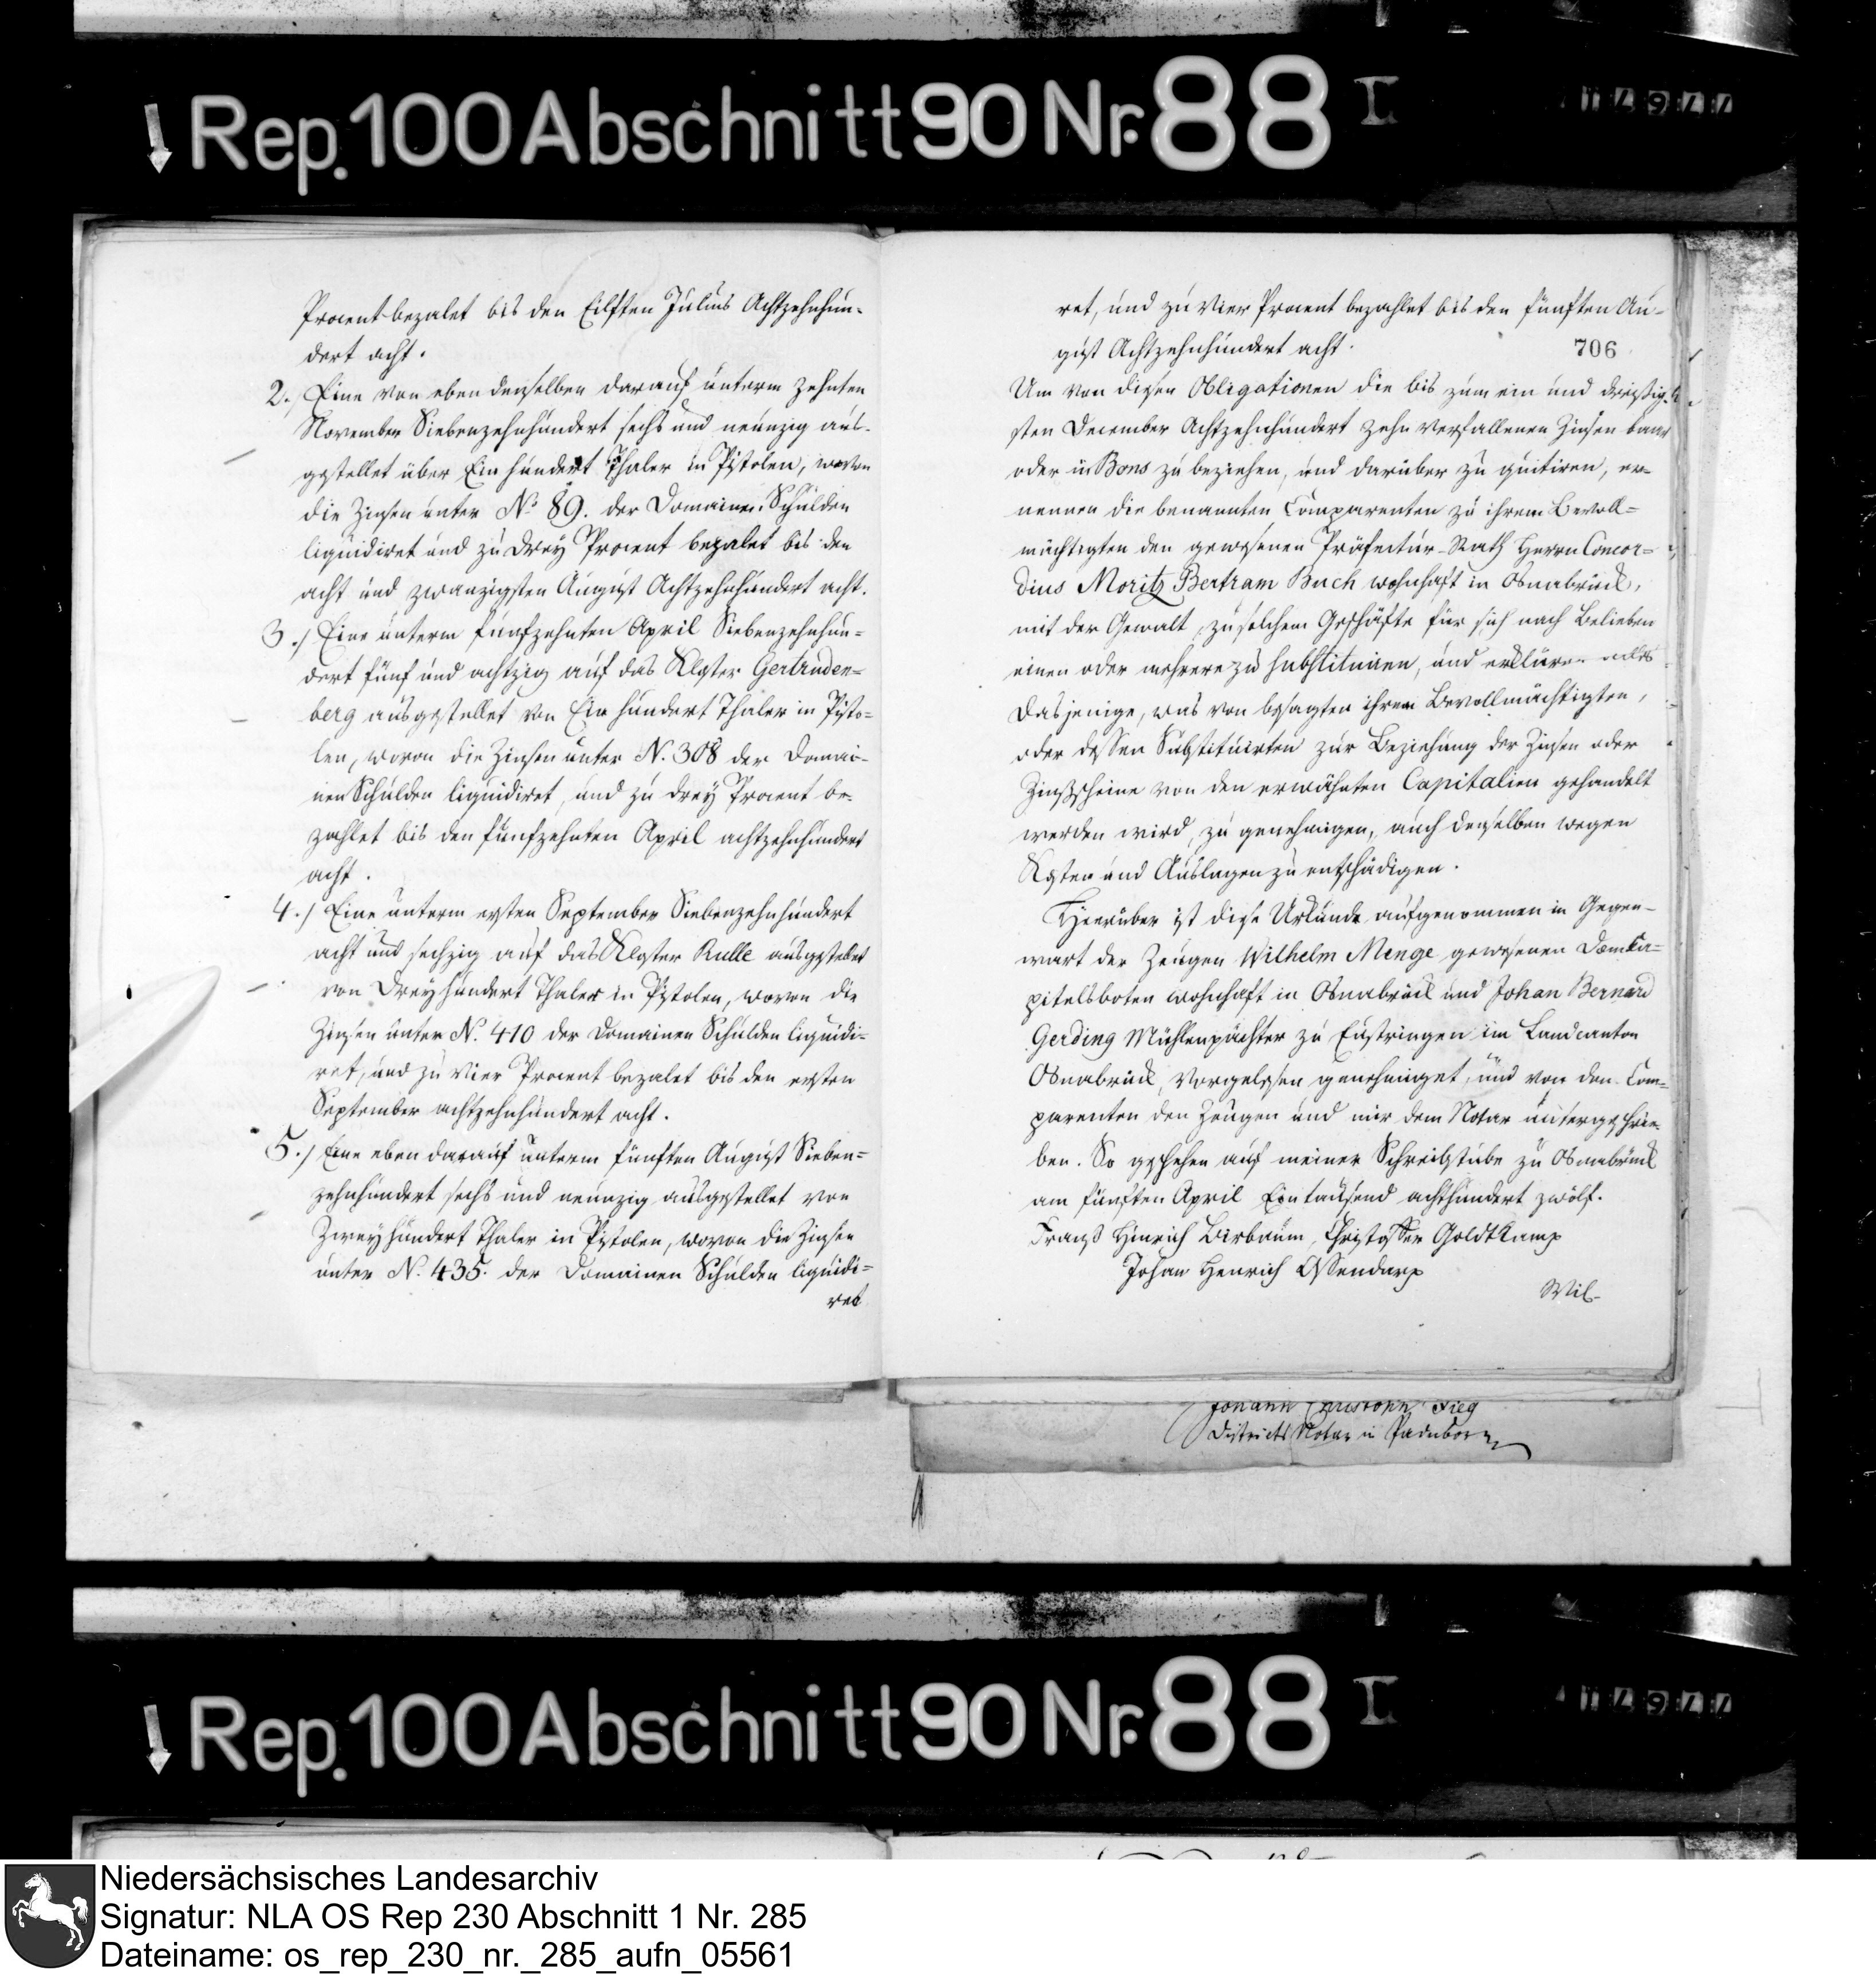 Rep. 100 Abschnitt 90 Nr. 88 I
Procent bezalet bis den Eilften Julius Achtzehnhun-
dert acht.
2.) Eine von eben denselben darauf unterm zehnten
November Siebenzehnhundert sechs und neunzig aus-
gestellet über Ein hundert Thaler in Pistolen, wovon
die Zinsen unter No 89. der Domainen Schulden
liquidiret und zu drey Procent bezalet bis den
acht und zwanzigsten August Achtzehnhundert acht.
3.) Eine unterm funfzehnten April Siebenzehnhun-
dert fünf und achtzig auf das Kloster Gertruden-
berg ausgestellet von Ein hundert Thaler in Pisto-
len, wovon die Zinsen unter N. 308 der Domai-
nen Schulden liquidiret, und zu drey Procent be-
zahlet bis den funfzehnten April achtzehnhundert
acht.
4.) Eine unterm ersten September Siebenzehnhundert
acht und sechzig auf das Kloster Rulle ausgestellet
von Dreyhundert Thaler in Pistolen, wovon die
Zinsen unter N. 410 der Domainen Schulden liquidi-
ret, und zu Vier Procent bezalet bis den ersten
September achtzehnhundert acht.
5.) Eine eben darauf unterm fünften August Sieben-
zehnhundert sechs und neunzig ausgestellet von
Zweyhundert Thaler in Pistolen, wovon die Zinsen
unter N. 435. der Domainen Schulden liquidi-
ret
ret, und zu Vier Procent bezahlet bis den fünften Au-
gust Achtzehnhundert acht.
706
Um von diesen Obligationen die bis zum ein und dreißig-
sten December Achtzehnhundert zehn verfallenen Zinsen baar
oder in Bons zu beziehen, und darüber zu quitiren, er-
nennen die benannten Comparenten zu ihrem Bevoll-
mächtigten den gewesenen Präfectur-Rath Herrn Concor-
dius Moritz Bertram Buch wohnhaft in Osnabrück,
mit der Gewalt, zu solchem Geschäfte für sich nach Belieben
einen oder mehrere zu substituiren, und erklären alles
dasjenige, was von besagten ihrem Bevollmächtigten,
oder dessen Substituirten zur Beziehung der Zinsen oder
Zinsscheine von den erwähnten Capitalien gehandelt
werden wird, zu genehmigen, auch denselben wegen
Kosten und Auslagen zu entschädigen.
Hierüber ist diese Urkunde aufgenommen in Gegen-
wart der Zeugen Wilhelm Menge gewesenen Domka-
pitelsboten wohnhaft in Osnabrück und Johan Bernard
Gerding Mühlenpächter zu Eustringen im Landcanton
Osnabrück, Vorgelesen genehmiget, und von den Com-
parenten den Zeugen und mir dem Notar unterschrie-
ben. So geschehen auf meiner Schreibstube zu Osnabrück
am fünften April Ein tausend achthundert zwölf.
Franz Hinrich Birbaum, Christoffer Goldtkamp
Johan Henrich Ossendarp
Wil-
Johann Christoph Fieg
Districts Notar in Paderborn
Rep. 100 Abschnitt 90 Nr. 88 I
Niedersächsisches Landesarchiv
Signatur: NLA OS Rep 230 Abschnitt 1 Nr. 285
Dateiname: os_rep_230_nr._285_aufn_05561